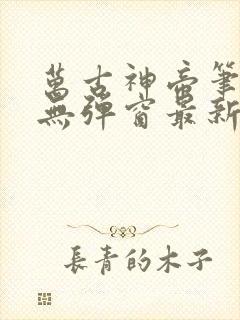 萬古神帝筆
無彈窗最新
長青的木子